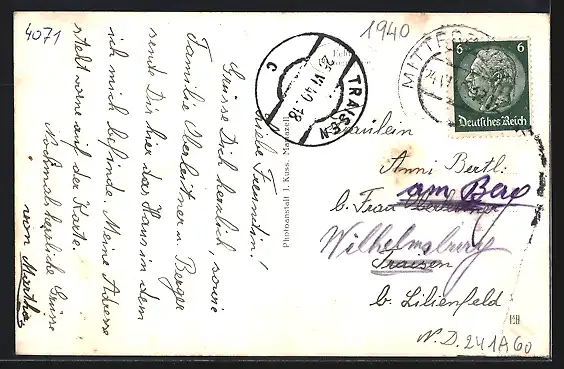 4071
1940
MITTER
24.VI
6 6
Deutsches Reich
TRAISEN
25.VI.40.18
C
Liebe Freundin!
Grüsse Dich herzlich, sowie
Familie Oberleitner u. Berger
sende Dir hier das Haus in dem
ich mich befinde. Meine Adresse
steht vorne auf der Karte.
Nochmals herzliche Grüsse
von Martha
Photoanstalt J. Kuss, Mariazell
Fräulein
Anni Bertl.
am Berg
b. Frau
Wilhelmsburg
Traisen
b. Lilienfeld
N.D. 241A60